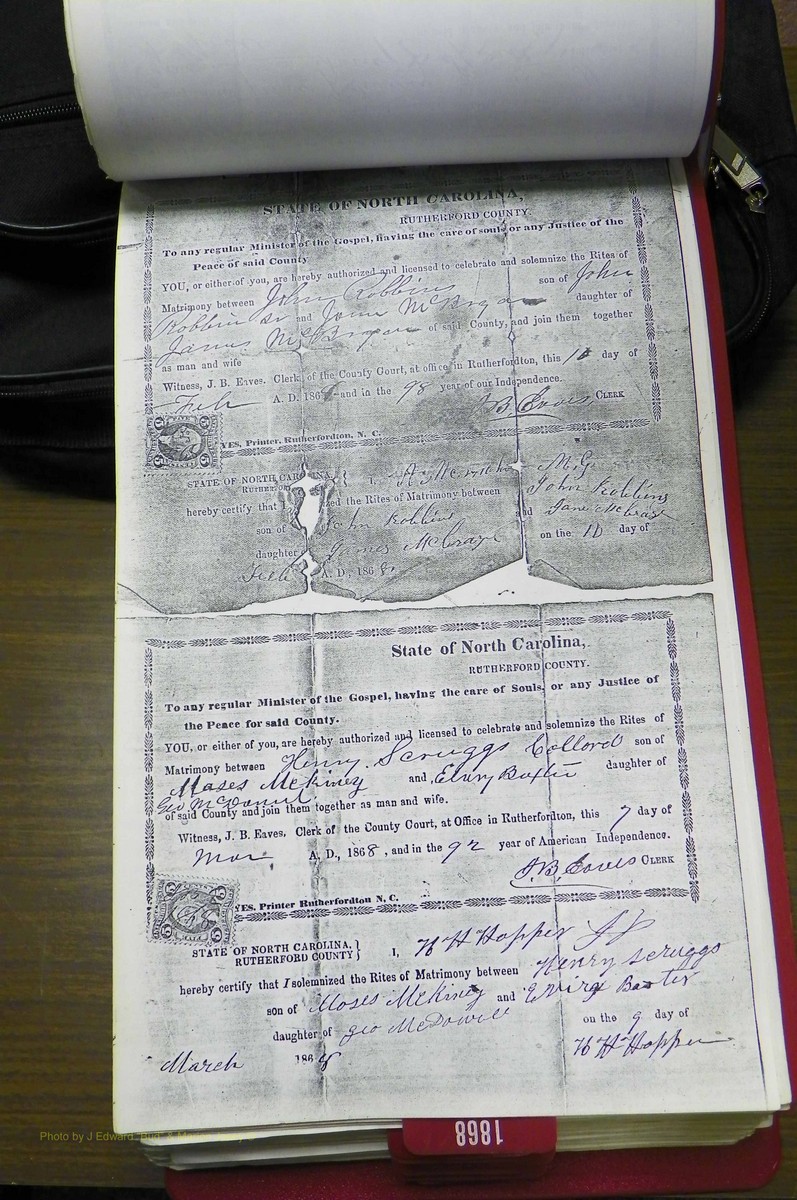 STATE OF NORTH CAROLINA,
RUTHERFORD COUNTY.
To any regular Minister of the Gospel, having the care of souls or any Justice of the
Peace of said County
YOU, or either of you, are hereby authorized and licensed to celebrate and solemnize the Rites of
Matrimony between John Robbins son of John
Robbins sr and Jane daughter of
James of said County, and join them together
as man and wife
Witness, J. B. Eaves. Clerk of the County Court, at office in Rutherfordton, this 10 day of
Feb A. D. 1868 and in the 92 year of our Independence.
J B Eaves CLERK
YES, Printer, Rutherfordton, N. C.
STATE OF NORTH CAROLINA, } I, M.G
hereby certify that I zed the Rites of Matrimony between John Robbins
son of John Robbins and Jane
daughter James on the 10 day of
Feb A. D., 1868.
State of North Carolina,
RUTHERFORD COUNTY.
To any regular Minister of the Gospel, having the care of Souls, or any Justice of
the Peace for said County.
YOU, or either of you, are hereby authorized and licensed to celebrate and solemnize the Rites of
Matrimony between Henry Scruggs Collord son of
Moses McKiney and Baxter daughter of
Geo
of said County and join them together as man and wife.
Witness, J. B. Eaves. Clerk of the County Court, at Office in Rutherfordton, this 7 day of
Mar A. D., 1868, and in the 92 year of American Independence.
J. B. Eaves CLERK
YES, Printer Rutherfordton N. C.
STATE OF NORTH CAROLINA, }
RUTHERFORD COUNTY } I, W H Hopper JP
hereby certify that I solemnized the Rites of Matrimony between Henry Scruggs
son of Moses McKiney and Baxter
daughter of Geo McDowell on the 9 day of
March 1868 W H Hopper
1868
Photo by J Edward